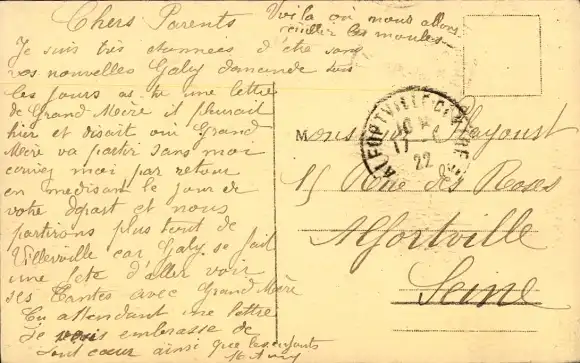 Chers Parents
Voila où nous allons
cueillir les moules
Je suis très étonnées d'être sans
vos nouvelles Galy demande tous
les jours as-tu une lettre
de Grand-Mère il pleurait
hier et disait oui Grand
Mère va partir sans moi
écrivez moi par retour
en me disant le jour de
votre départ et nous
partirons plus tout de
Villerville car Galy se fait
une fête d'aller voir
ses Tantes avec Grand Mère
En attendant une lettre
Je vous embrasse de
tout cœur ainsi que les enfants
ALFORTVILLE
17
22
Monsieur
15 Rue des Roses
Alfortville
Seine